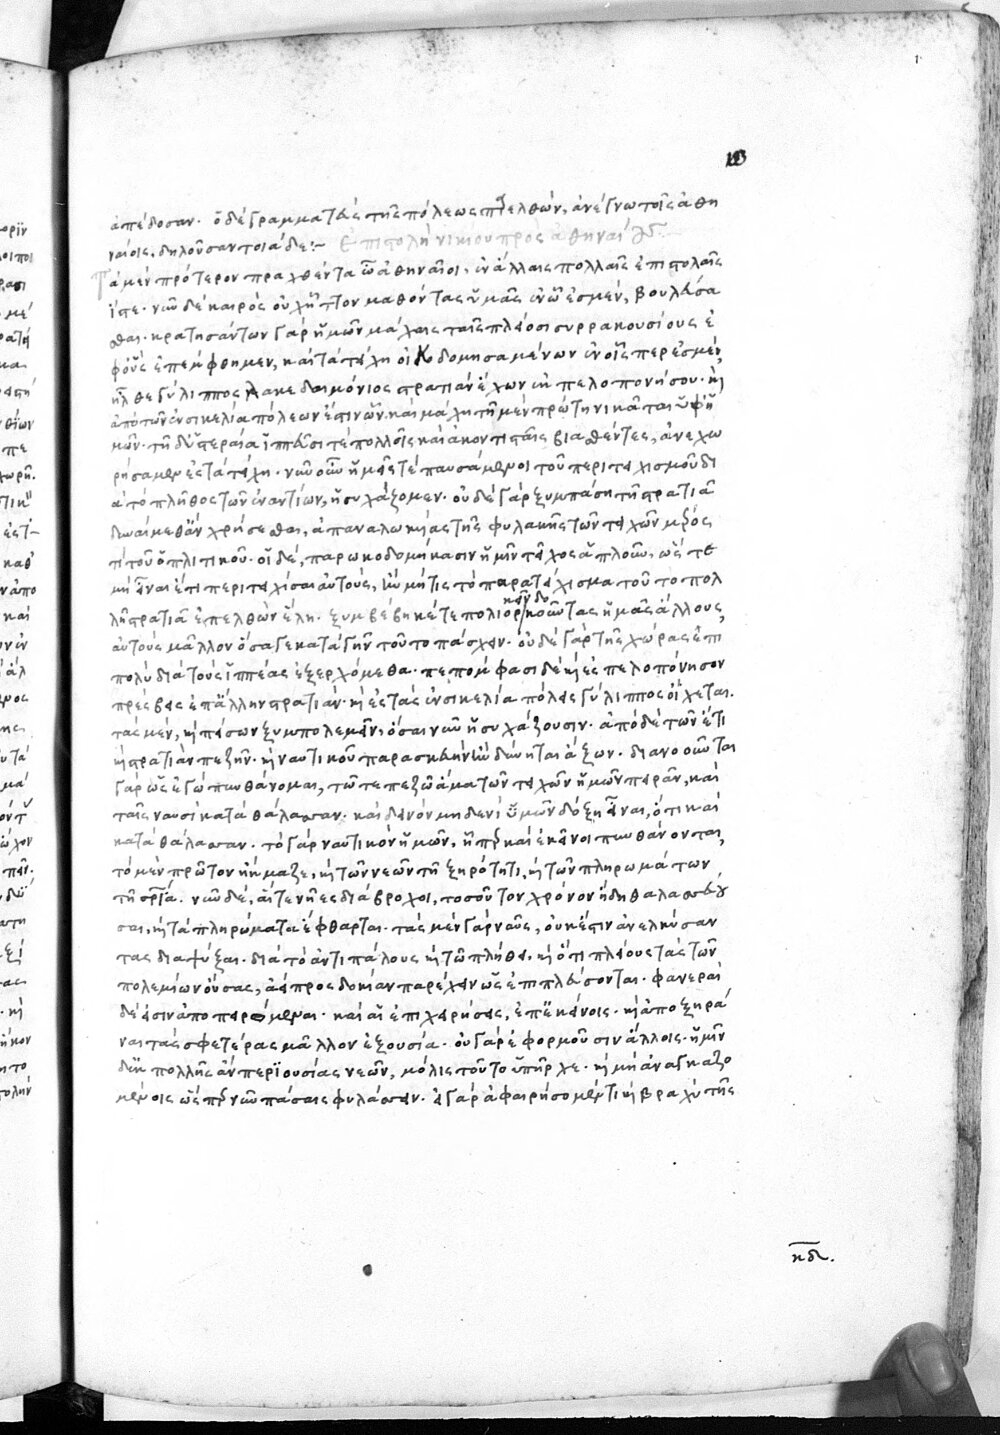 ἀπέδοσαν. ὁ δὲ γραμματεὺς τῆς πόλεως παρελθών, ἀνέγνω τοῖς ἀθη
ναίοις, δηλοῦσαν τοιάδε:~ Ἐπιστολὴ νικίου πρὸς ἀθηναίους
Τὰ μὲν πρότερον πραχθέντα ὦ ἀθηναῖοι, ἐν ἄλλαις πολλαῖς ἐπιστολαῖς
ἴστε. νῦν δὲ καιρὸς οὐχ ἧττον μαθόντας ὑμᾶς ἐν ᾧ ἐσμὲν, βουλεύσα
σθαι. κρατησάντων γὰρ ἡμῶν μάχαις ταῖς πλείοσι συρρακουσίους ἐ
φ' οὓς ἐπέμφθημεν, καὶ τὰ τείχη οἰκοδομησαμένων ἐν οἷς περ ἐσμὲν,
ἦλθε γύλιππος λακεδαιμόνιος στρατιὰν ἔχων ἐκ πελοπονήσου. καὶ
ἀπὸ τῶν ἐν σικελία πόλεων ἔστιν ὧν. καὶ μάχη τῇ μὲν πρώτη νικᾶται ὑφ' ἡ
μῶν. τῇ δ' ὑστεραία ἱππεῦσί τε πολλοῖς καὶ ἀκοντισταῖς βιασθέντες, ἀνεχω
ρήσαμεν ἐς τὰ τείχη. νῦν οὖν ἡμεῖς τε παυσάμενοι τοῦ περιτειχισμοῦ δι
ὰ τὸ πλῆθος τῶν ἐναντίων, ἡσυχάζομεν. οὐδὲ γὰρ ξυμπάση τῇ στρατιᾶ
δυναίμεθ' ἂν χρήσεσθαι, ἀπαναλωκυίας τῆς φυλακῆς τῶν τειχῶν μέρος
τι τοῦ ὁπλιτικοῦ. οἱ δὲ, παρωκοδομήκασιν ἡμῖν τεῖχος ἁπλοῦν, ὥστε
μὴ εἶναι ἔτι περιτειχίσαι αὐτοὺς, ἢν μή τις τὸ παρατείχισμα τοῦτο πολ
λῇ στρατιᾶ ἐπελθὼν ἕλη. ξυμβέβηκέ τε πολιορκεῖν δοκοῦντας ἡμᾶς ἄλλους,
αὐτοὺς μᾶλλον ὅσα γε κατὰ γῆν τοῦτο πάσχειν. οὐδὲ γὰρ τῆς χώρας ἐπι
πολὺ διὰ τοὺς ἱππέας ἐξερχόμεθα. πεπόμφασι δὲ καὶ ἐς πελοπόνησον
πρέσβεις ἐπ' ἄλλην στρατιάν. καὶ ἐς τὰς ἐν σικελία πόλεις γύλιππος οἴχεται.
τὰς μὲν, καὶ πείσων ξυμπολεμεῖν, ὅσαι νῦν ἡσυχάζουσιν. ἀπὸ δὲ τῶν ἔτι
καὶ στρατιὰν πεζὴν. καὶ ναυτικοῦ παρασκευὴν ἢν δύνηται ἄξων. διανοοῦνται
γὰρ ὡς ἐγὼ πυνθάνομαι, τῶ τε πεζῶ ἅμα τῶν τειχῶν ἡμῶν πειρᾶν, καὶ
ταῖς ναυσὶ κατὰ θάλασσαν. καὶ δεινὸν μηδενὶ ὑμῶν δόξη εἶναι, ὅτι καὶ
κατὰ θάλασσαν. τὸ γὰρ ναυτικὸν ἡμῶν, ὅπερ καὶ ἐκεῖνοι πυνθάνονται,
τὸ μὲν πρῶτον ἤκμαζε, καὶ τῶν νεῶν τῇ ξηρότητι, καὶ τῶν πληρωμάτων
τῇ σωτηρία. νῦν δὲ, αἵ τε νῆες διάβροχοι, τοσοῦτον χρόνον ἤδη θαλασσεύου
σαι, καὶ τὰ πληρώματα ἔφθαρται. τὰς μὲν γὰρ ναῦς, οὐκ ἔστιν ἀνελκύσαν
τας διαψύξαι. διὰ τὸ ἀντιπάλους καὶ τῶ πλήθει, καὶ ὅτι πλείους τὰς τῶν
πολεμίων οὔσας, ἀεὶ προσδοκίαν παρέχειν ὡς ἐπιπλεύσονται. φανεραὶ
δέ εἰσιν ἀποπειρώμεναι. καὶ αἱ ἐπιχειρήσεις, ἐπ' ἐκείνοις. καὶ ἀποξηρᾶ
ναι τὰς σφετέρας μᾶλλον ἐξουσία. οὐ γὰρ ἐφορμοῦσιν ἄλλοις. ἡμῖν
δ' ἐκ πολλῆς ἂν περϊουσίας νεῶν, μόλις τοῦτο ὑπῆρχε. καὶ μὴ ἀναγκαζο
μένοις ὥσπερ νῦν πάσαις φυλάσσειν. εἰ γὰρ ἀφαιρήσομέν τι καὶ βραχὺ τῆς
κδ.